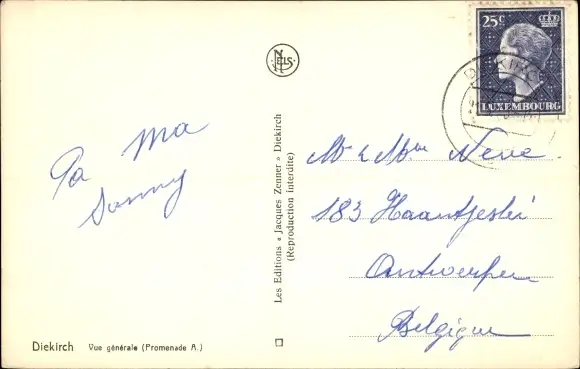 25c
LUXEMBOURG
DIEKIRCH
NELS
Pa Ma
Sonny
Les Editions « Jacques Zenner » Diekirch
(Reproduction interdite)
Mr & Mme Neve
183 Haantjeslei
Antwerpen
Belgique
Diekirch Vue générale (Promenade A.)